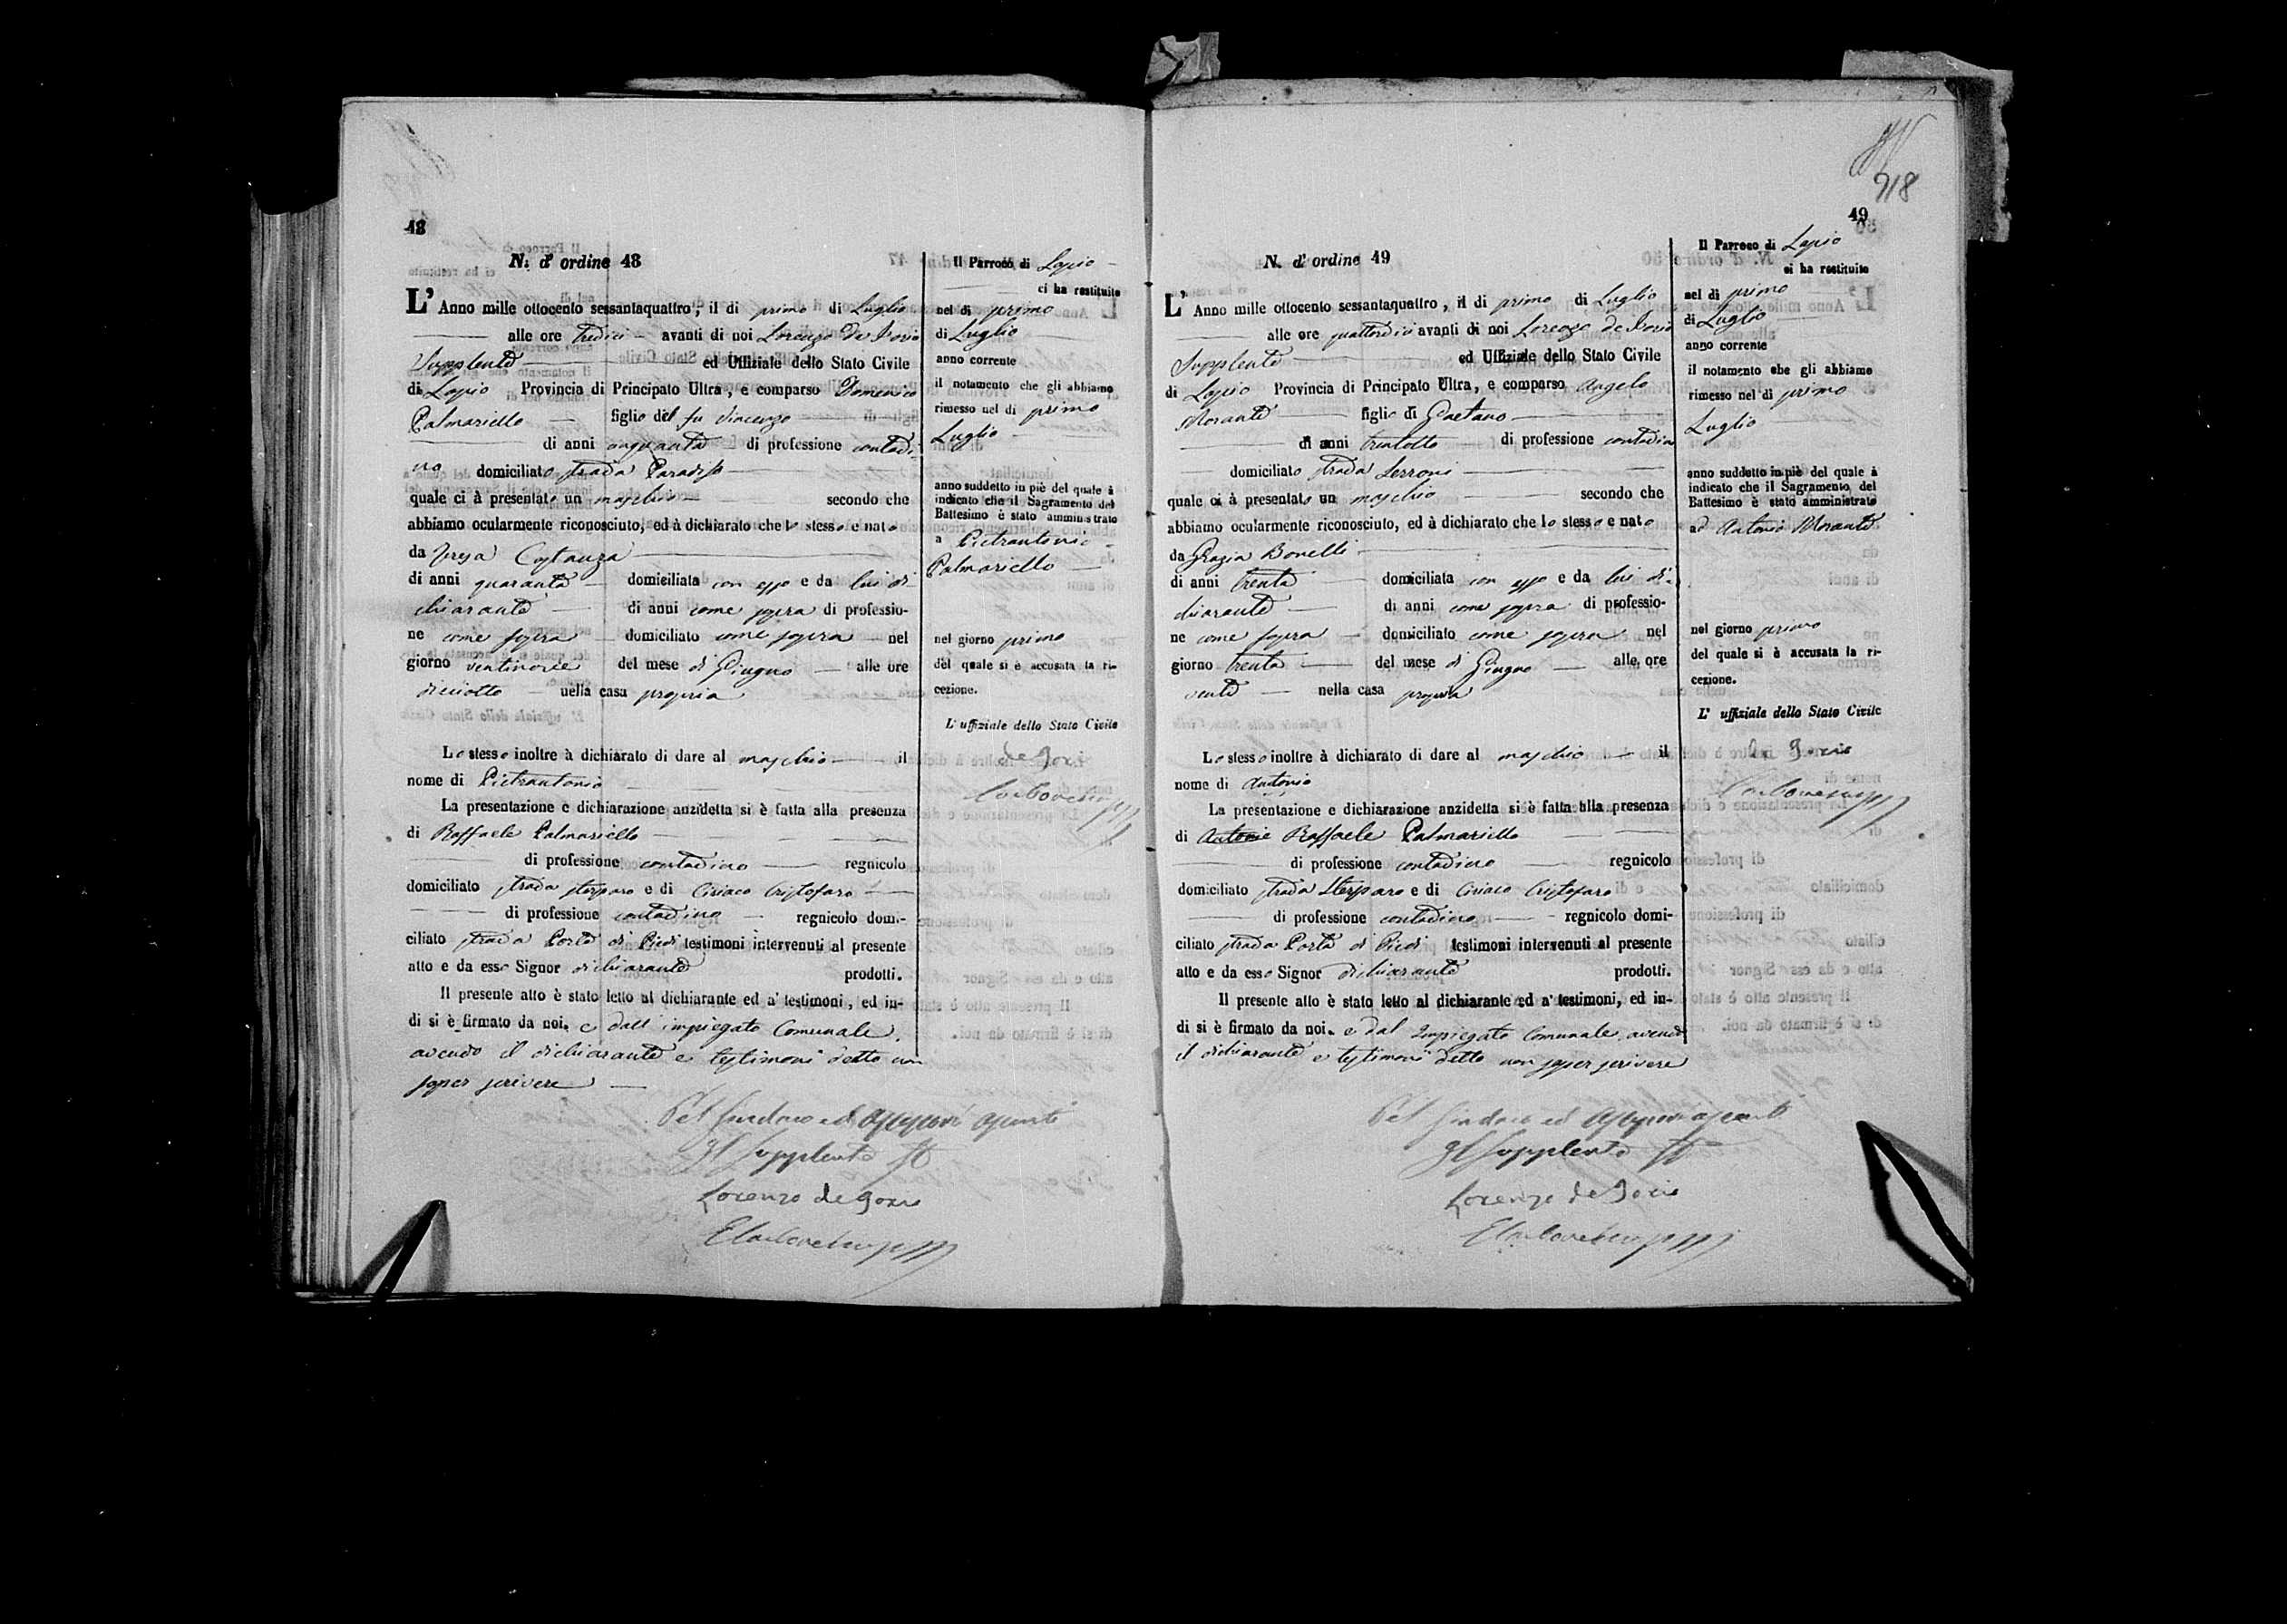 48
N. d' ordine 48
L' Anno mille ottocento sessantaquattro, il dì primo di Luglio
alle ore tredici avanti di noi Lorenzo de Iorio
Supplente ed Uffiziale dello Stato Civile
di Lapio Provincia di Principato Ultra, e comparso Domenico
Palmariello figlio del fu Vincenzo
di anni cinquanta di professione contadi-
no domiciliato strada Paradiso
quale ci à presentato un maschio secondo che
abbiamo ocularmente riconosciuto, ed à dichiarato che lo stesso e nato
da Teresa Costanza
di anni quaranta domiciliata con esso e da lui di-
chiarante di anni come sopra di professio-
ne come sopra domiciliato come sopra nel
giorno ventinove del mese di Giugno alle ore
diciotto nella casa propria
Lo stesso inoltre à dichiarato di dare al maschio il
nome di Pietrantonio
La presentazione e dichiarazione anzidetta si è fatta alla presenza
di Raffaele Palmariello
di professione contadino regnicolo
domiciliato strada sterparo e di Ciriaco Cristofaro
di professione contadino regnicolo domi-
ciliato strada Porta di Piedi testimoni intervenuti al presente
atto e da esso Signor dichiarante prodotti.
Il presente atto è stato letto al dichiarante ed a' testimoni, ed in-
di si è firmato da noi. e dall' impiegato Comunale,
avendo il dichiarante e testimoni detto non
saper scrivere
Pel Sindaco ed assessori assenti
Il Supplente
Lorenzo de Iorio
Il Parroco di Lapio
ci ha restituito
nel dì primo
di Luglio
anno corrente
il notamento che gli abbiamo
rimesso nel dì primo
Luglio
anno suddetto in piè del quale à
indicato che il Sagramento del
Battesimo è stato amministrato
a Pietrantonio
Palmariello
nel giorno primo
del quale si è accusata la ri-
cezione.
L' uffiziale dello Stato Civile
de Iorio
918
49
N. d' ordine 49
L' Anno mille ottocento sessantaquattro, il dì primo di Luglio
alle ore quattordici avanti di noi Lorenzo de Iorio
Supplente ed Uffiziale dello Stato Civile
di Lapio Provincia di Principato Ultra, e comparso Angelo
Morante figlio di Gaetano
di anni trentotto di professione contadino
domiciliato strada Serroni
quale ci à presentato un maschio secondo che
abbiamo ocularmente riconosciuto, ed à dichiarato che lo stesso e nato
da Grazia Bonelli
di anni trenta domiciliata con esso e da lui di-
chiarante di anni come sopra di professio-
ne come sopra domiciliato come sopra nel
giorno trenta del mese di Giugno alle ore
venti nella casa propria
Lo stesso inoltre à dichiarato di dare al maschio il
nome di Antonio
La presentazione e dichiarazione anzidetta si è fatta alla presenza
di Antonio Raffaele Palmariello
di professione contadino regnicolo
domiciliato strada Sterparo e di Ciriaco Cristofaro
di professione contadino regnicolo domi-
ciliato strada Porta di Piedi testimoni intervenuti al presente
atto e da esso Signor dichiarante prodotti.
Il presente atto è stato letto al dichiarante ed a' testimoni, ed in-
di si è firmato da noi. e dal Impiegato Comunale, avendo
il dichiarante e testimoni detto non saper scrivere
Pel Sindaco ed assessori assenti
Il Supplente
Lorenzo de Iorio
Il Parroco di Lapio
ci ha restituito
nel dì primo
di Luglio
anno corrente
il notamento che gli abbiamo
rimesso nel dì primo
Luglio
anno suddetto in piè del quale à
indicato che il Sagramento del
Battesimo è stato amministrato
ad Antonio Morante
nel giorno primo
del quale si è accusata la ri-
cezione.
L' uffiziale dello Stato Civile
de Iorio